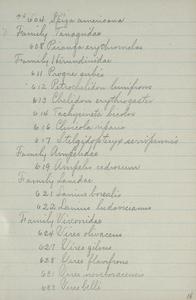 604 Spiza americana
Family Tanagridae
608 Piranga erythromelas
Family Hirundinidae
611 Progne subis
612 Petrochelidon lunifrons
613 Chelidon erythrogaster
614 Tachycineta bicolor
616 Clivicola riparia
617 Stelgidopteryx serripennis
Family Ampelidae
619 Ampelis cedrorum
Family Laniidae
621 Lanius borealis
622 Lanius ludovicianus
Family Vireonidae
624 Vireo olivaceus
627 Vireo gilvus
628 Vireo flavifrons
631 Vireo noveboracensis
633 Vireo bellii